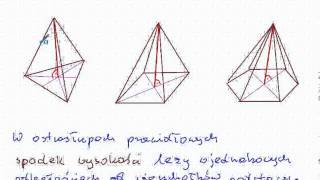 W ostrosłupach prawidłowych
spodek wysokości leży w jednakowych
odległościach od wierzchołków podstawy.